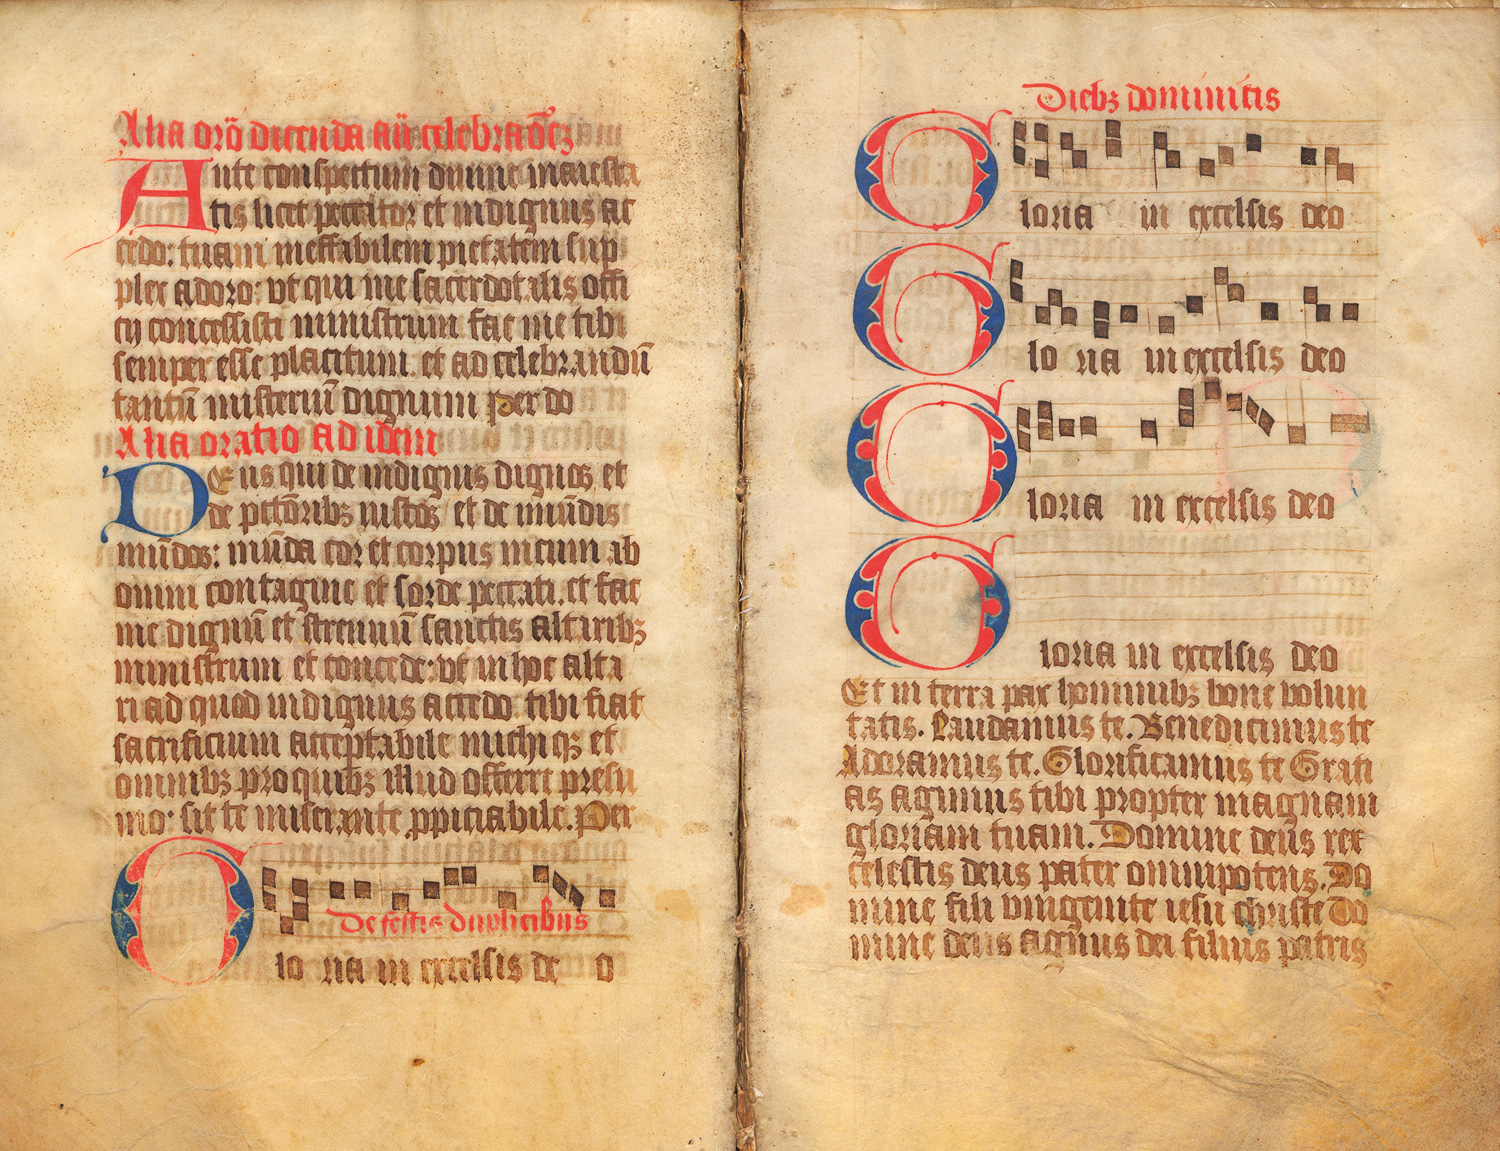 Alia orō dicenda aū celebraōēz
Ante conspectum diuine maiesta
tis licet peccator et indignus ac
cedo: tuam ineffabilem pietatem sup
plex adoro: vt qui me sacerdotalis offi
cij concessisti ministrum fac me tibi
semper esse placitum et ad celebrandū
tantū misteriū dignum per do
Alia oratio ad idem
DEus qui de indignis dignos et
de pctōribꝫ iustos et de mūdis
mūdos: mūda cor et corpus meum ab
omni contagine et sorde peccati et fac
me dignū et strenuū sanctis altaribꝫ
ministrum et concede: vt in hoc alta
ri ad quod indignus accedo tibi fiat
sacrificium acceptabile michi qꝫ et
omnibꝫ pro quibꝫ illud offerre presu
mo: sit te miserante ꝓpiciabile. Per
De festis duplicibus
Glo ria in excelsis de o
Diebꝫ dominicis
Gloria in excelsis deo
Glo ria in excelsis deo
Gloria in excelsis deo
Gloria in excelsis deo
Et in terra pax hominibꝫ bone volun
tatis. Laudamus te. Benedicimus te
Adoramus te. Glorificamus te Grati
as agimus tibi propter magnam
gloriam tuam. Domine deus rex
celestis deus pater omnipotens. Do
mine fili vnigenite iesu christe Do
mine deus agnus dei filius patris